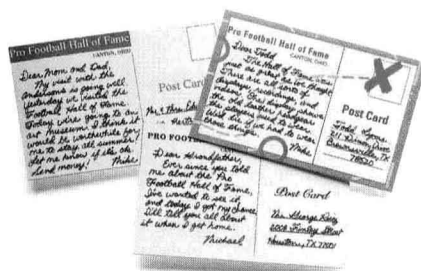 Pro Football Hall of Fame
CANTON, OHIO
Dear Mom and Dad,
My visit with the
is going well.
Yesterday we visited the
Football Hall of Fame.
going to an
art museum. I think it
would be worthwhile for
me to stay all summer.
Let me know if it's ok.
Send money!
Mike
Post Card
Pro Football Hall of Fame
CANTON, OHIO
Dear Todd,
The Hall of Fame
is just as great as we thought.
There are all sorts of
displays,
the old leather
if we had to wear
Mike
Post Card
Todd
Brownsville, TX
78520
PRO FOOTBALL
Dear Grandfather,
Ever since you told
me about the Pro
Football Hall of Fame,
I've wanted to see it,
and today I got my chance.
I'll tell you all about
it when I get home.
Michael
Post Card
Mr. George
Street
Houston, TX 77021